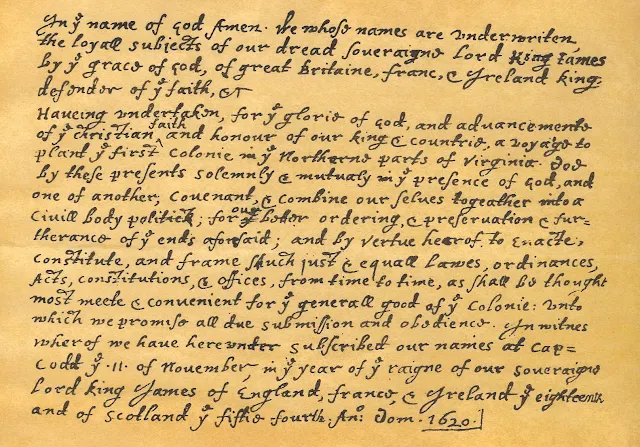 In yᵉ name of god Amen· We whose names are vnderwriten,
the loyall subjects of our dread soveraigne Lord King James
by yᵉ grace of god, of great Britaine, franc, & Ireland king,
defender of yᵉ faith, &c
Haveing vndertaken, for yᵉ glorie of god, and advancemente
of yᵉ christian ^faith and honour of our king & countrie, a voyage to
plant yᵉ first colonie in yᵉ Northerne parts of virginia· doe
by these presents solemnly & mutualy in yᵉ presence of god, and
one of another, covenant, & combine our selves togeather into a
civill body politick; for ^our better ordering, & preservation & fur=
therance of yᵉ ends aforesaid; and by vertue hearof to Enacte,
constitute, and frame shuch just & equall lawes, ordinances,
Acts, constitutions, & offices, from time to time, as shall be thought
most meete & convenient for yᵉ generall good of yᵉ colonie: vnto
which we promise all due submission and obedience. In witnes
wherof we have herevnder subscribed our names at cap=
Codd yᵉ ·11· of November, in yᵉ year of yᵉ raigne of our soveraigne
Lord king James of England, france, & Ireland yᵉ eighteenth
and of scotland yᵉ fiftie fourth. Anº: dom. 1620.